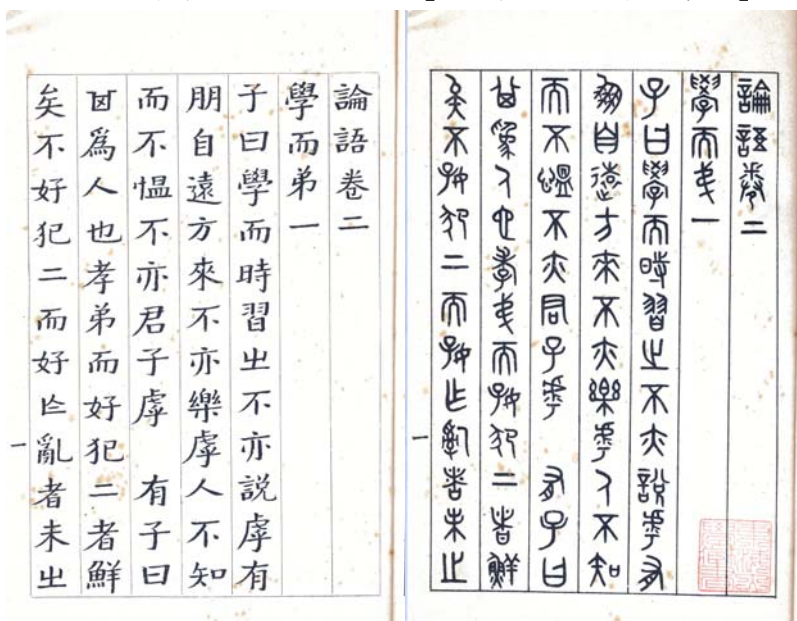 論語卷二
學而弟一
子曰學而時習㞢不亦說虖有
朋自遠方來不亦樂虖人不知
而不慍不亦君子虖　有子曰
爲人也孝弟而好犯二者鮮
矣不好犯二而好乍亂者未㞢
一
論語卷二
學而弟一
子曰學而時習㞢不亦說虖有
朋自遠方來不亦樂虖人不知
而不慍不亦君子虖　有子曰
爲人也孝弟而好犯二者鮮
矣不好犯二而好乍亂者未㞢
一